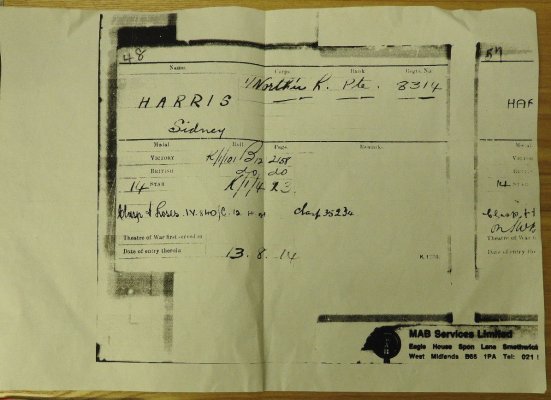 48
Name. Corps. Rank. Regtl. No.
HARRIS 1/North'n R. Pte. 8314
Sidney
Medal Roll. Page. Remarks.
VICTORY K/1/101 B12 2158
BRITISH do. do
14 STAR K/1/4 23.
Clasp & Roses. IV. 840/C. 12 Clasp 35234
Theatre of War first served in
Date of entry therein 13. 8. 14
K. 1380.
57
HAR
Medal
VICTORY
BRITISH
14 STAR
Clasp
Theatre of War
Date of entry the
MAB Services Limited
Eagle House Spon Lane Smethwick
West Midlands B66 1PA Tel: 021